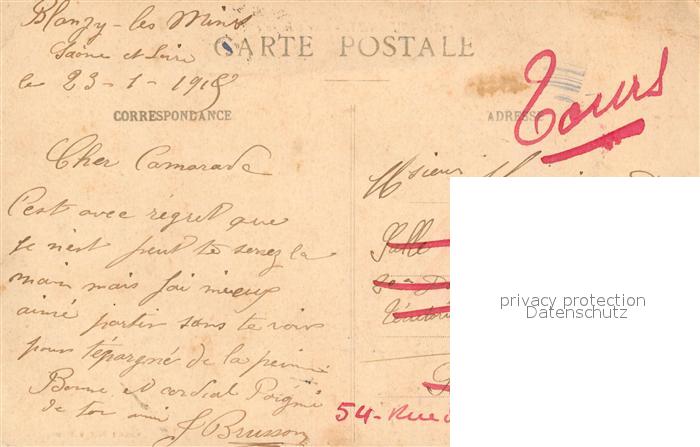 Blanzy-les Mines
Saône et Loire
CARTE POSTALE
le 23-1-1915
CORRESPONDANCE
Cher Camarade
C'est avec régret que
je n'est peut te serez la
main mais j'ai mieux
aimé partir sans te voir
pour t'épargné de la peine
Bonne et cordial Poigné
de ton ami
J Brusson
ADRESSE
Tours
Msieur
Salle
54-Rue
privacy protection
Datenschutz